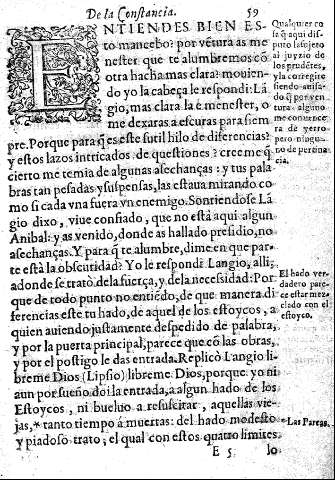 De la Constancia. 59
ENTIENDES BIEN ES-
to mancebo? por vẽtura as me
nester que te alumbremos cõ
otra hacha mas clara? mouien-
do yo la cabeça le respondi: Lã
gio, mas clara la è menester, o
me dexaras a escuras para siem
pre. Porque para q̃ es este sutil hilo de diferencias?
y estos lazos intricados de questiones? creeme q̃
cierto me temia de algunas asechanças: y tus pala
bras tan pesadas y suspensas, las estaua mirando co
mo si cada vna fuera vn enemigo. Sonriendose Lã
gio dixo, viue confiado, que no està aqui algun
Anibal: y as venido, donde as hallado presidio, no
asechanças. Y para q̃ te alumbre, dime en que par-
te està la obscutidad? Yo le respondi Langio, alli,
adonde se tratò de la fuerça, y de la necesidad: Por
que de todo punto no entiẽdo, de que manera di
ferencias este tu hado, de aquel de los estoycos, a
quien auiendo justamente despedido de palabra,
y por la puerta principal, parece que cõ las obras,
y por el postigo le das entrada. Replicò Langio li
breme Dios (Lipsio) libreme Dios, porque yo ni
aun por sueño doi la entrada, a algun hado de los
Estoycos, ni bueluo a resuscitar, aquellas vie-
jas,* tanto tiempo à muertas: del hado modesto
y piadoso trato, el qual con estos quatro limites
E 5 lo
Qualquier co
sa q̃ aqui dis-
puto la sojeto
al juyzio de
los prudẽtes,
y la corregire
siendo anisa-
do q̃ por ven
tura alguno
me conuence
ra de yerro
pero ningu-
no de pertina
cia.
El hado ver-
dadero pare-
ce estar mez-
clado con el
estoyco.
*Las Parcas.